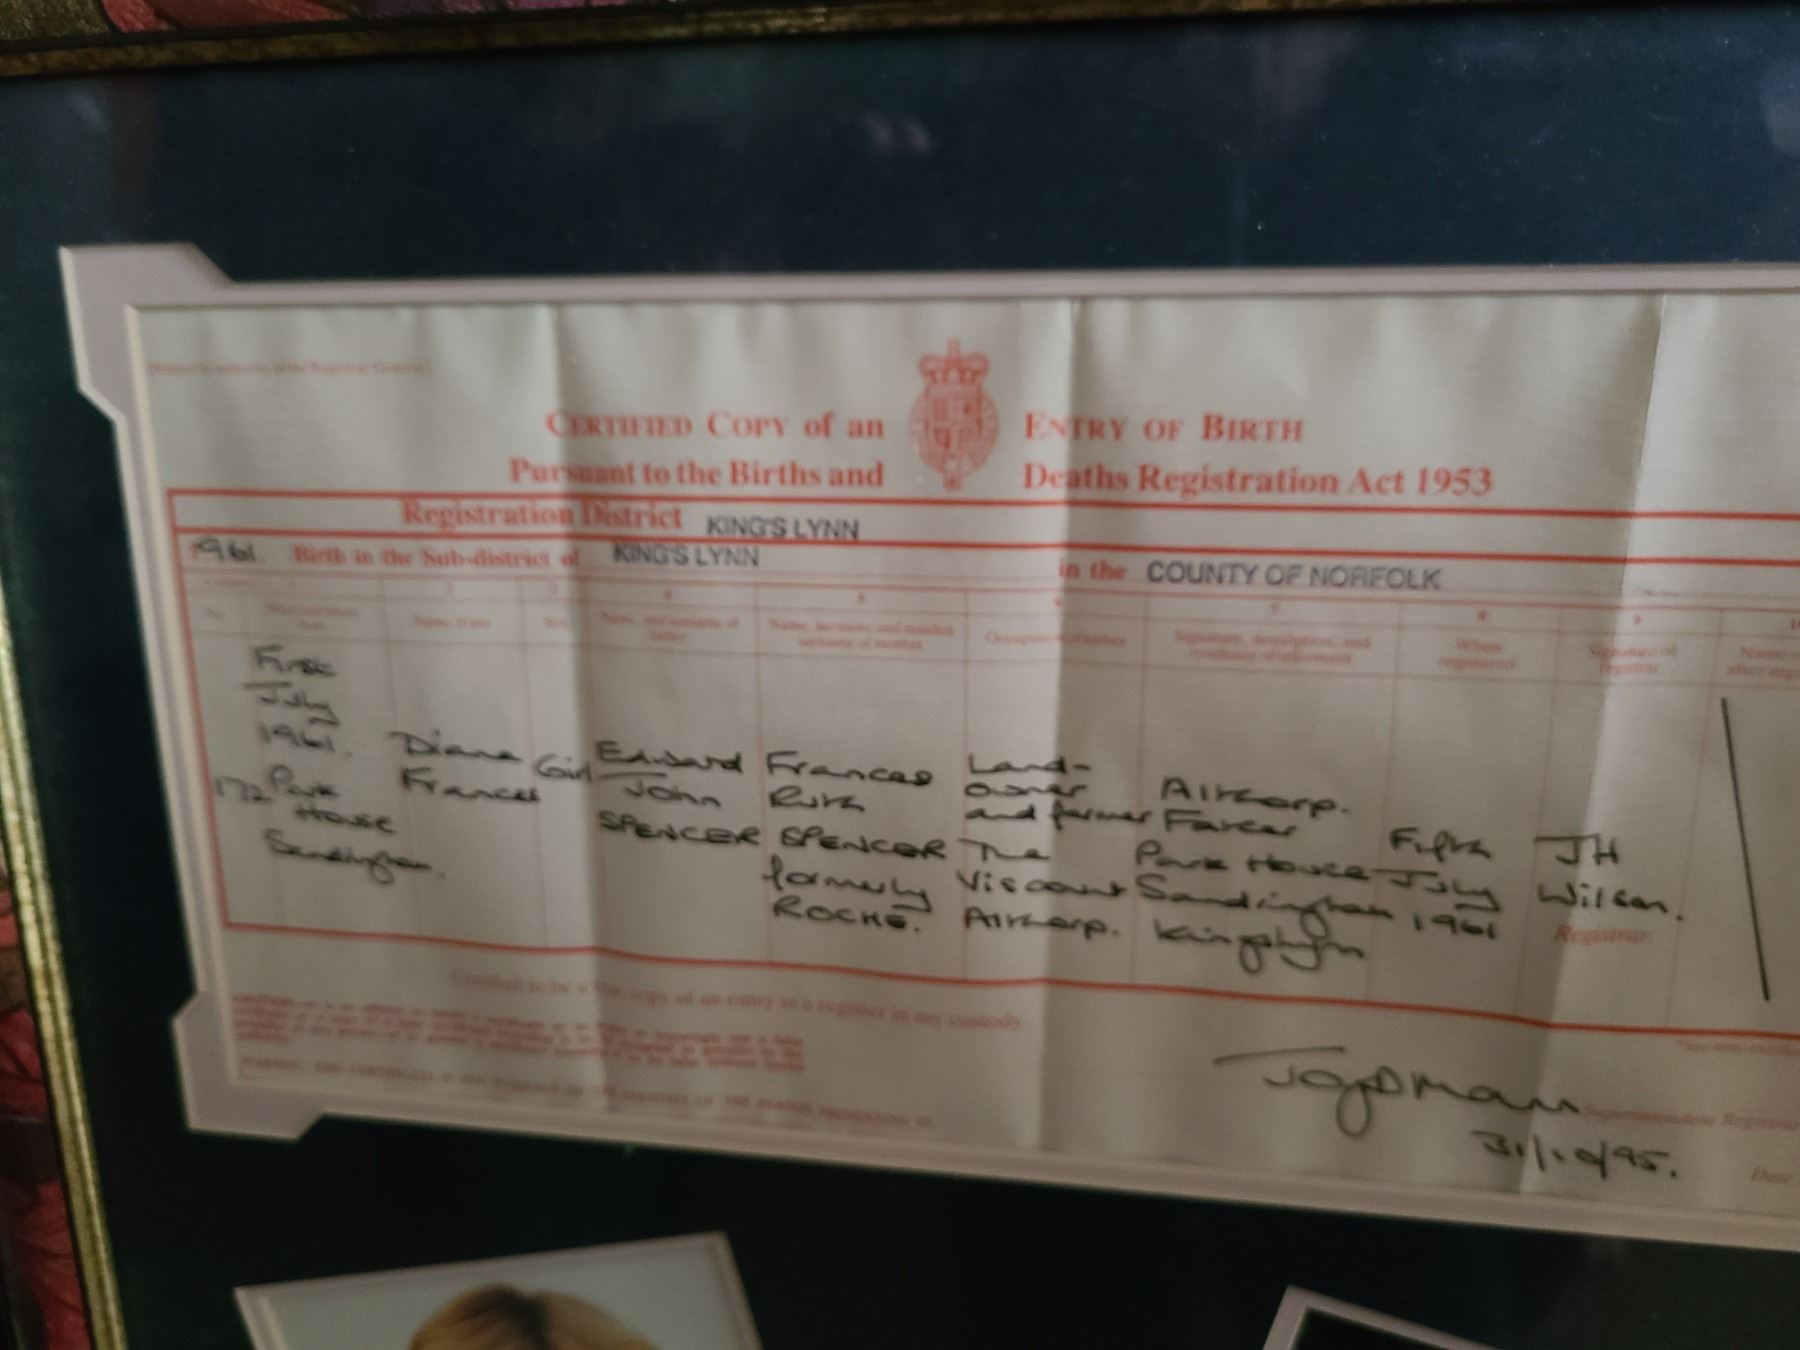 CERTIFIED COPY of an ENTRY OF BIRTH
Pursuant to the Births and Deaths Registration Act 1953
Registration District KING'S LYNN
1961. Birth in the Sub-district of KING'S LYNN in the COUNTY OF NORFOLK
1 2 3 4 5 6 7 8 9
Name, if any
Name, and surname of father
Name, surname and maiden surname of mother
Occupation of father
Signature, description, and residence of informant
When registered
Signature of registrar
172
First
July
1961.
Park
House
Sandringham.
Diana
Frances
Girl
Edward
John
SPENCER
Frances
Ruth
SPENCER
formerly
ROCHE.
Land-
owner
and farmer
The
Viscount
Althorp.
Althorp.
Father
Park House
Sandringham
Kingslynn
Fifth
July
1961
JH
Wilson.
Registrar.
Certified to be a true copy of an entry in a register in my custody
Superintendent Registrar
31/10/95.
Date